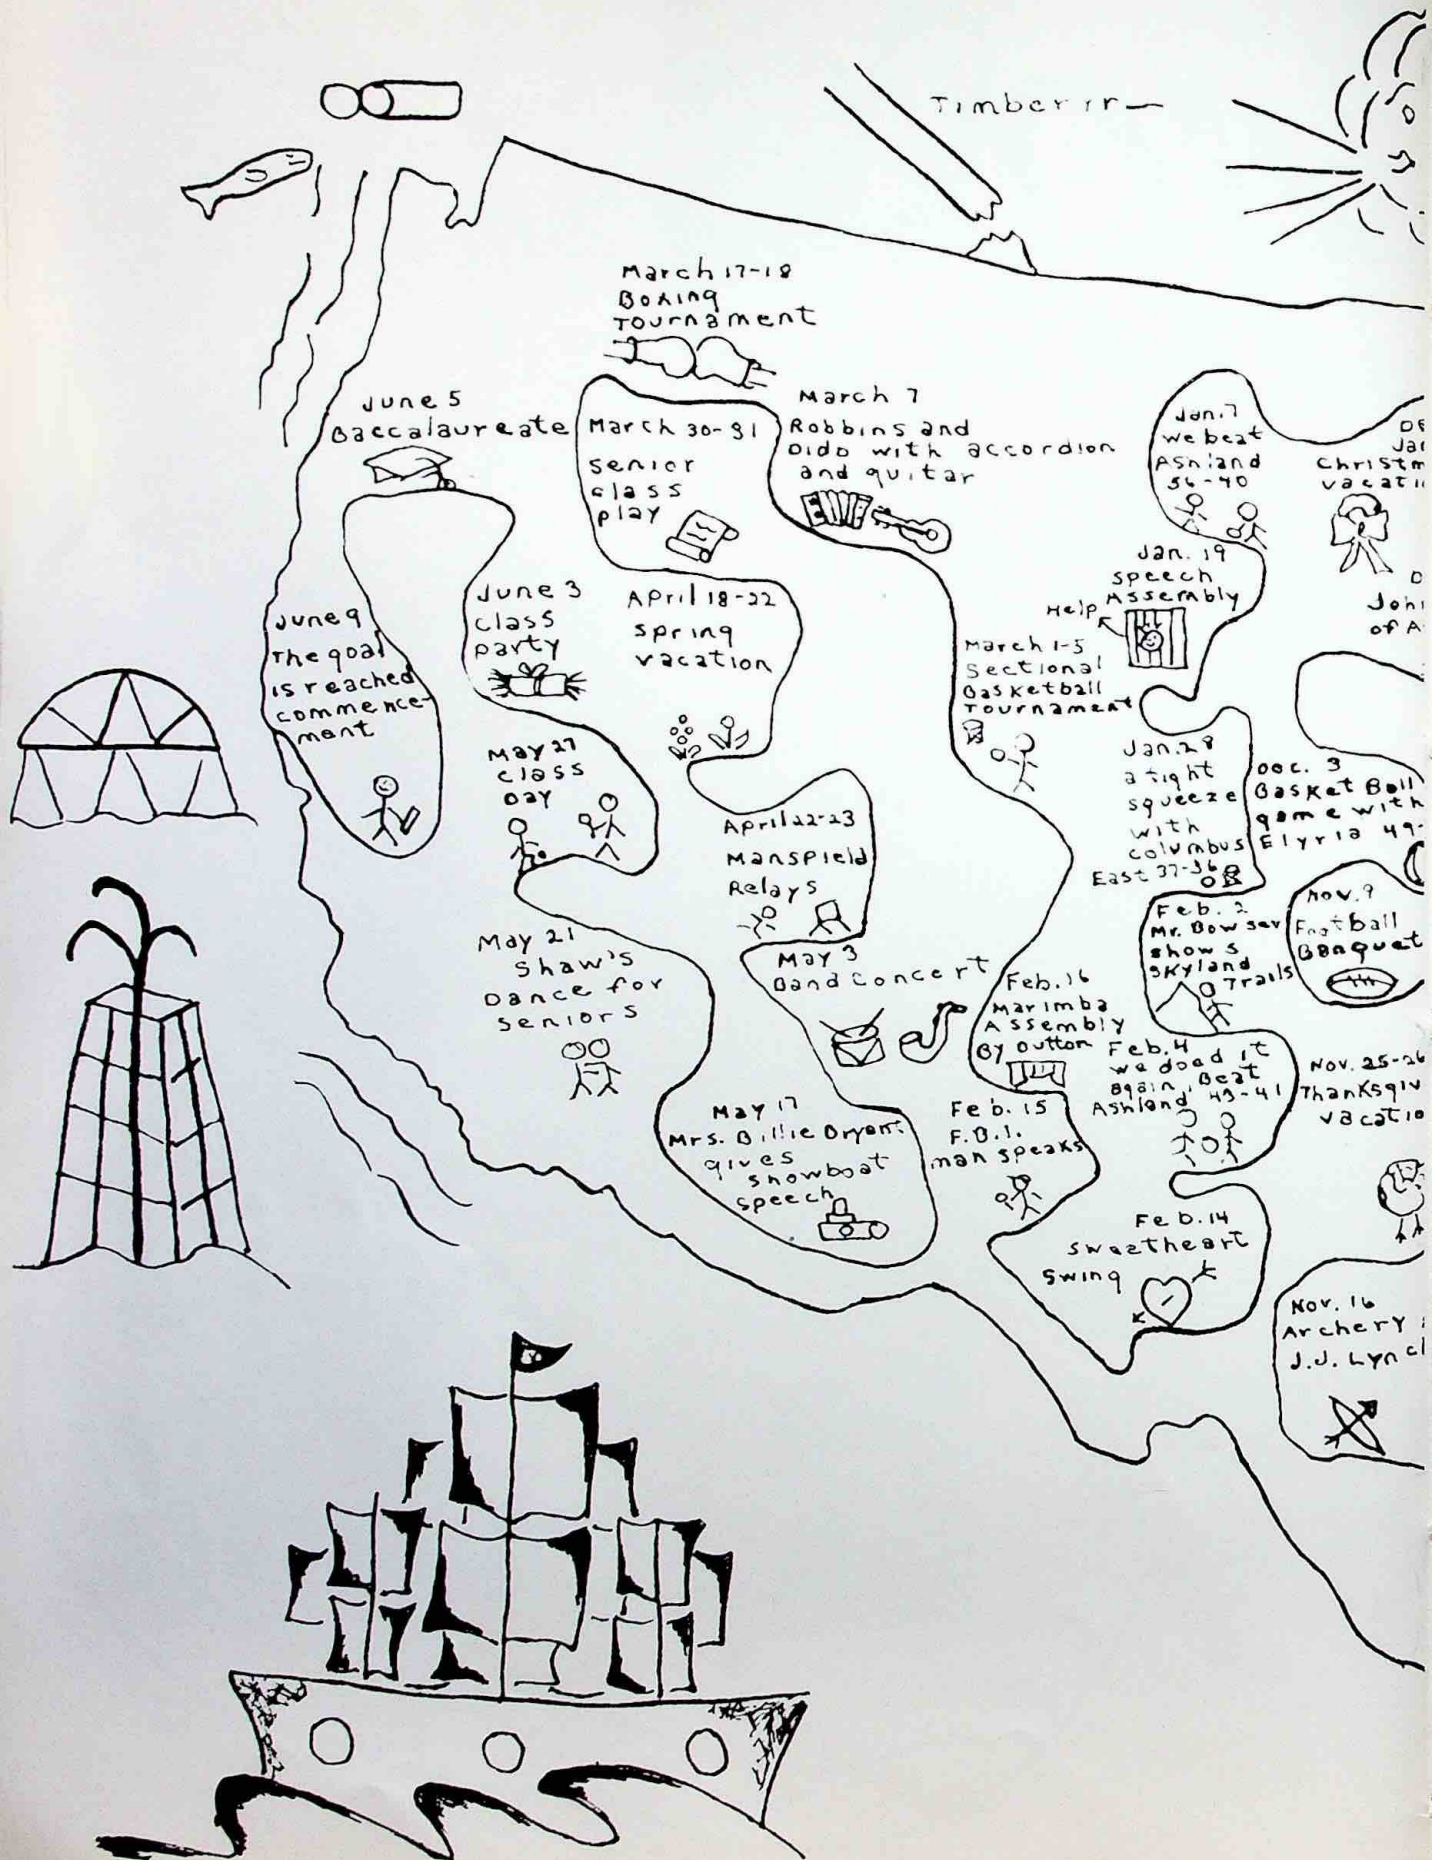 Timber-r-r—
March 17-18
Boxing
Tournament
June 5
Baccalaureate
March 30-31
senior
class
play
March 7
Robbins and
Dido with accordion
and guitar
Jan. 7
we beat
Ashland
56-40
Christm
vacati
Jan. 19
speech
Assembly
Help
John
of A
June 9
The goal
is reached
commence-
ment
June 3
class
party
April 18-22
spring
vacation
March 1-5
Sectional
Basketball
Tournament
May 27
Class
Day
April 22-23
Mansfield
Relays
Jan. 28
a tight
squeeze
with
columbus
East 37-36
Dec. 3
Basket Ball
game with
Elyria 49-
Nov. 9
Football
Banquet
Feb. 2
Mr. Bowser
shows
Skyland
Trails
May 21
Shaw's
Dance for
Seniors
May 3
Band Concert
Feb. 16
Marimba
Assembly
By Dutton
Feb. 4
we dood it
again, Beat
Ashland 43-41
Nov. 25-26
Thanksgiv
vacatio
May 17
Mrs. Billie Bryant
gives
showboat
speech
Feb. 15
F.B.I.
man speaks
Feb. 14
Sweetheart
Swing
Nov. 16
Archery
J.J. Lync